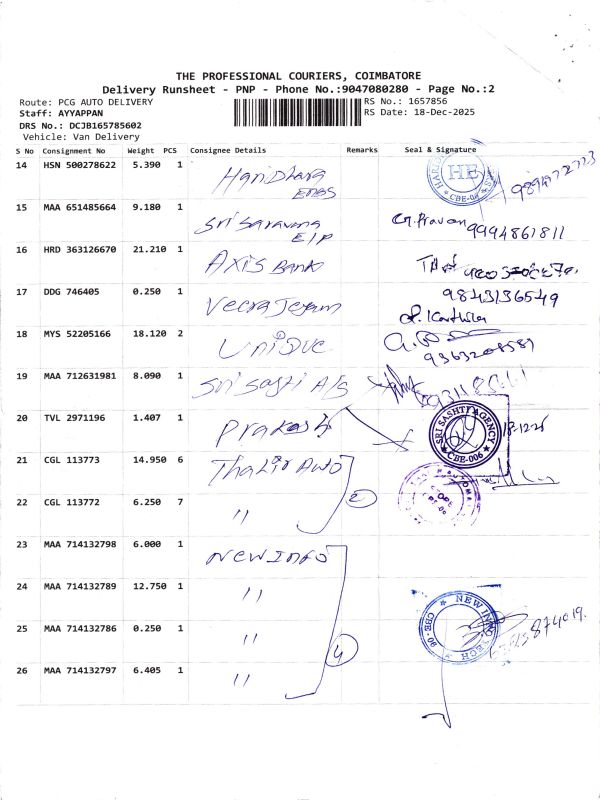 THE PROFESSIONAL COURIERS, COIMBATORE
Delivery Runsheet - PNP - Phone No.:9047080280 - Page No.:2
Route: PCG AUTO DELIVERY
RS No.: 1657856
Staff: AYYAPPAN
RS Date: 18-Dec-2025
DRS No.: DCJB165785602
Vehicle: Van Delivery
S No Consignment No Weight PCS Consignee Details Remarks Seal & Signature
14 HSN 500278622 5.390 1 Hari Dhara
HE
CBE-04
15 MAA 651485664 9.180 1 Sri Saravana E/P 9994861811
16 HRD 363126670 21.210 1 Axis Bank
17 DDG 746405 0.250 1 Veera Jeyam 9843136549
18 MYS 52205166 18.120 2 Unique
19 MAA 712631981 8.090 1 Sri Sasti A/S
20 TVL 2971196 1.407 1 Prakash
SRI SASHTI AGENCY
CBE-006
21 CGL 113773 14.950 6 Thalir
22 CGL 113772 6.250 7 "
2
23 MAA 714132798 6.000 1 New Info
24 MAA 714132789 12.750 1 "
NEW INFO TECH
CBE-90
25 MAA 714132786 0.250 1 "
4
26 MAA 714132797 6.405 1 "